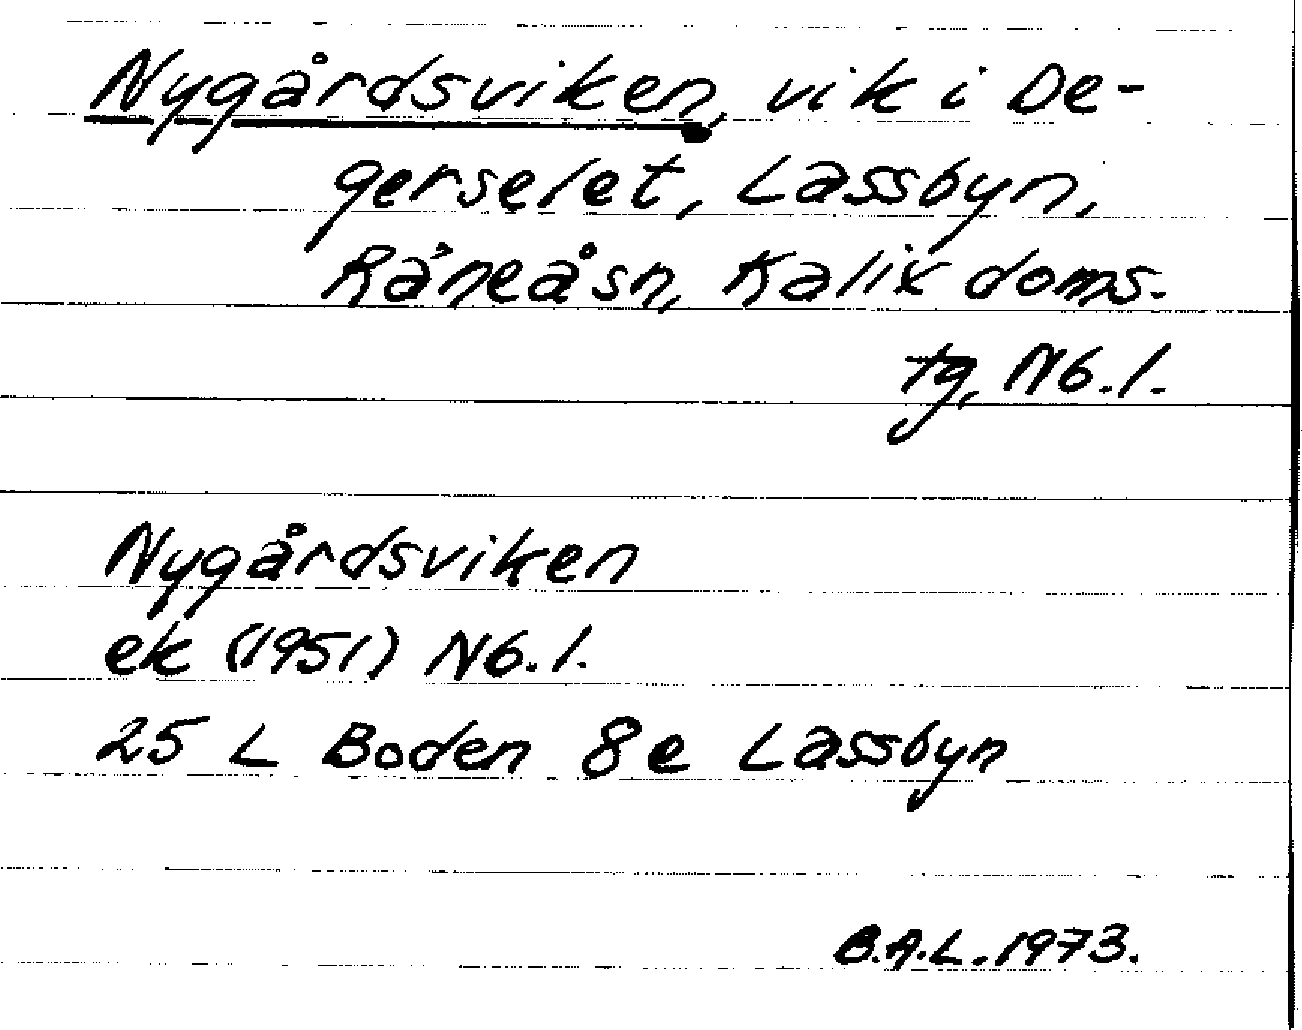 Nygårdsviken, vik i De-
gerselet, Lassbyn,
Råneåsn, Kalix doms.
tg, Nb.l.
Nygårdsviken
ek (1951) Nb.l.
25 L Boden 8e Lassbyn
B.A.L. 1973.